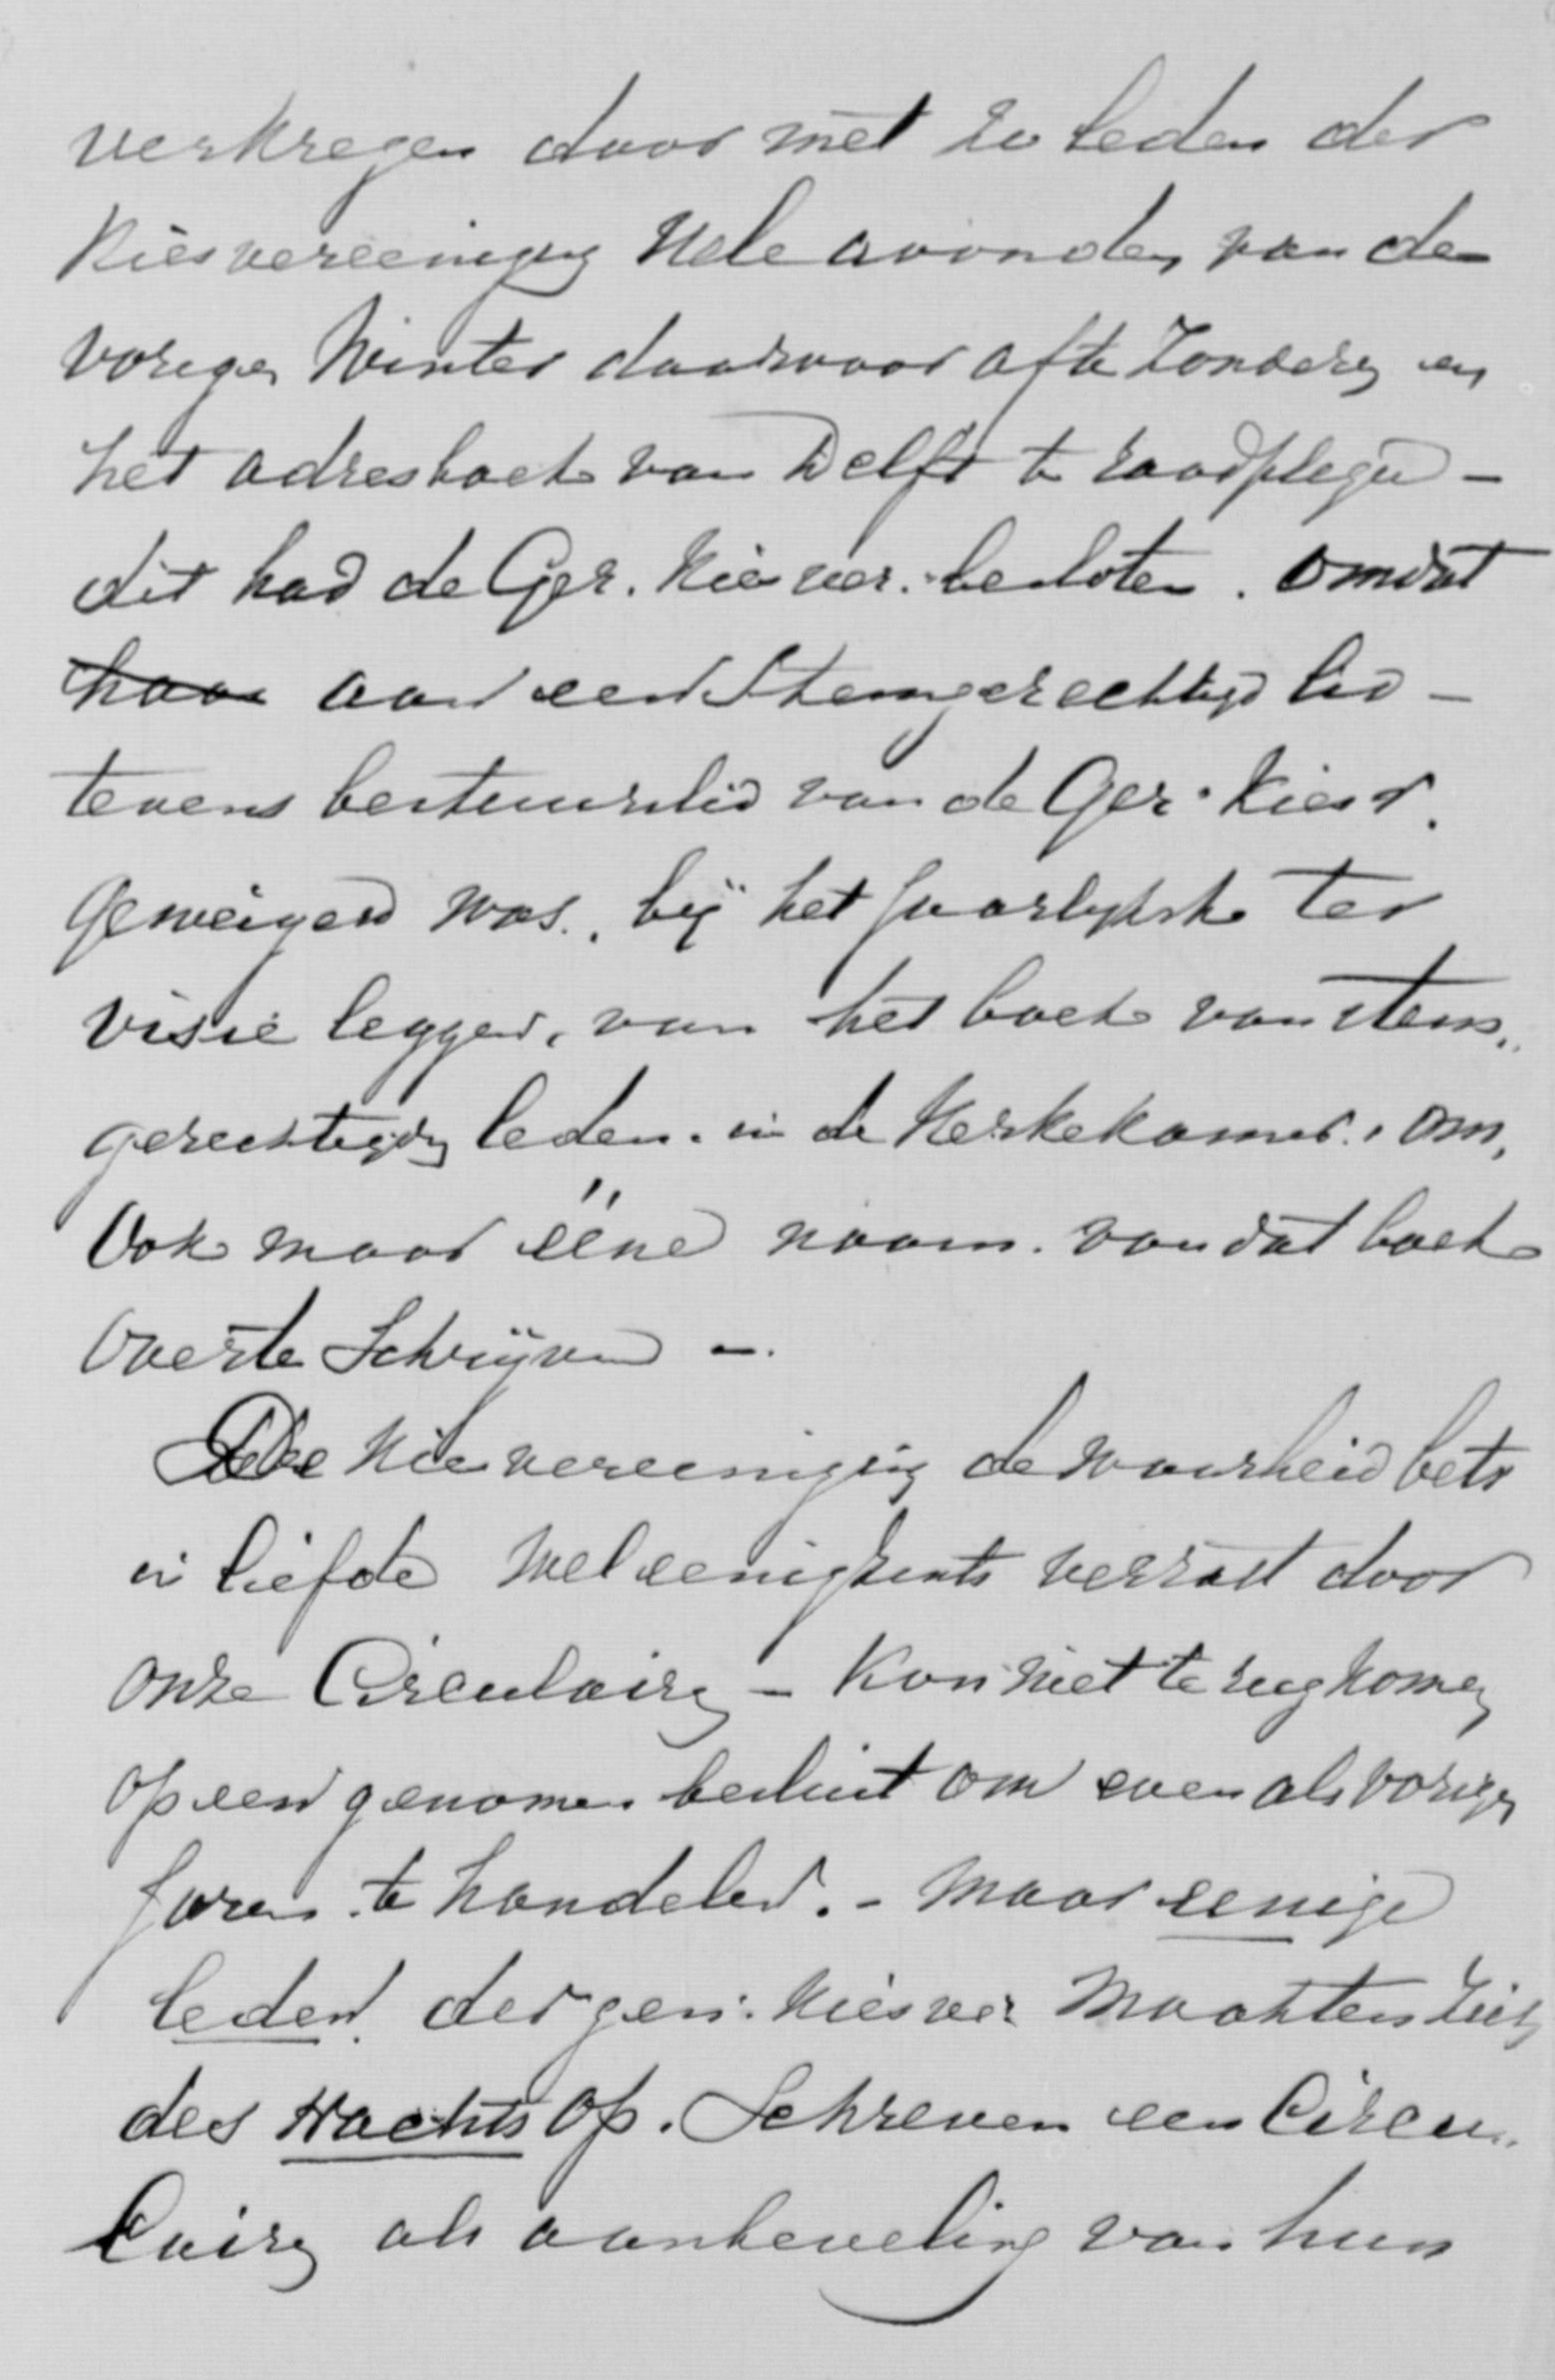 verkregen door met 20 leden der
Kiesvereeniging Hele avonden van den
vorigen Winter daarvoor afte Zonderen en
het adresboek van Delft te raadplegen -
dit had de Ger. Kiesver. besloten. omdat
haar aan een Stemgerechtigd lid -
tevens bestuurslid van de Ger. Kiesv.
Geweigerd was., bij het Jaarlyksche ter
visie leggen, van het boek van stem„
gerechtigden leden. in de Kerkekamer., om,
Ook maar ééne naam. van dat boek
Overte Schrijven -.
De Kiesvereeniging de waarheid betr
in liefde Wel eenigzints verrast door
onze Circulaire - Kon niet terugkomen
op een genomen besluit om even als vorige
Jaren. te handelen. - Maar eenige
leden. der gen. Kiesver Maakten Zich
des Nachts op. Schreven een Circu„
laire als aanbeveling van hun